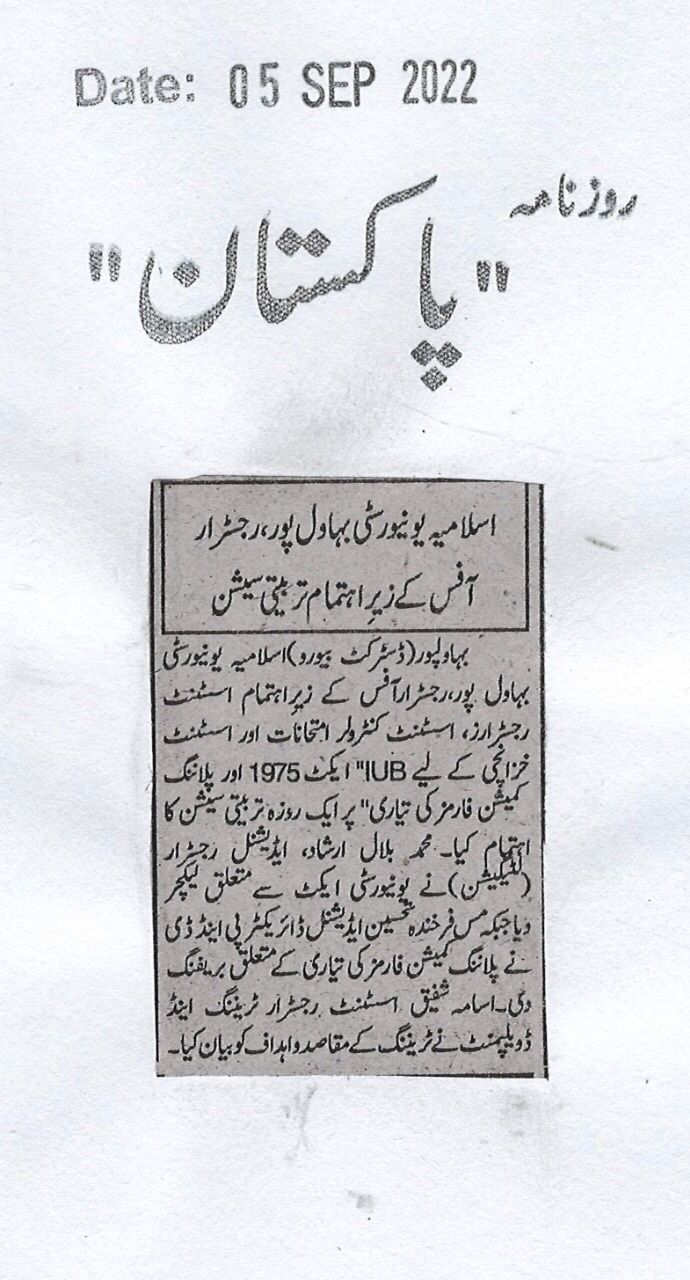 Date: 05 SEP 2022
روزنامہ
"پاکستان"
اسلامیہ یونیورسٹی بہاول پور، رجسٹرار
آفس کے زیر اہتمام تربیتی سیشن
بہاولپور (ڈسٹرکٹ بیورو) اسلامیہ یونیورسٹی
بہاول پور، رجسٹرار آفس کے زیر اہتمام اسسٹنٹ
رجسٹرارز، اسسٹنٹ کنٹرولر امتحانات اور اسسٹنٹ
خزانچی کے لیے IUB" ایکٹ 1975 اور پلاننگ
کمیشن فارمز کی تیاری" پر ایک روزہ تربیتی سیشن کا
اہتمام کیا۔ محمد بلال ارشاد، ایڈیشنل رجسٹرار
(لٹیگیشن) نے یونیورسٹی ایکٹ سے متعلق لیکچر
دیا جبکہ مس فرخندہ تحسین ایڈیشنل ڈائریکٹر پی اینڈ ڈی
نے پلاننگ کمیشن فارمز کی تیاری کے متعلق بریفنگ
دی۔ اسامہ شفیق اسسٹنٹ رجسٹرار ٹریننگ اینڈ
ڈویلپمنٹ نے ٹریننگ کے مقاصد و اہداف کو بیان کیا۔